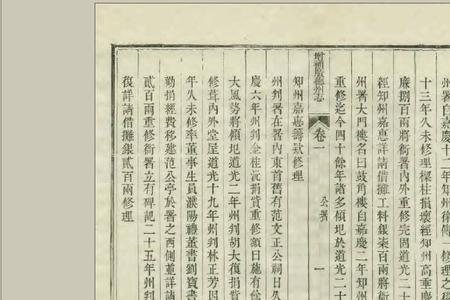 州署自嘉慶十二年知州徐傳一修理之後
十三年久未修理樑柱損壞經知州高重慶
廉捌百兩將衙署內外重修完固道光二十
經知州嘉惠詳請借攤工料銀柒百兩將衙
州署大門樓名曰鼓角樓自嘉慶二年知州
重修迄今四十餘年諸多傾圮於道光二十
州志 卷一 公署 一
知州嘉惠籌款修理
州判署在署內東首舊有范文正公祠日久
慶六年州判金柱沅捐貲重修額曰施有
大風勢將傾圮道光二年州判胡大復捐貲
修葺內外堂屋道光十九年州判林正芳因
年久未修率董事生員濮陽禮董書劉寶書
勸捐經費移建范公亭於署之西側並詳請
貳百兩重修衙署立有碑記二十五年州判
復詳請借攤銀貳百兩修理